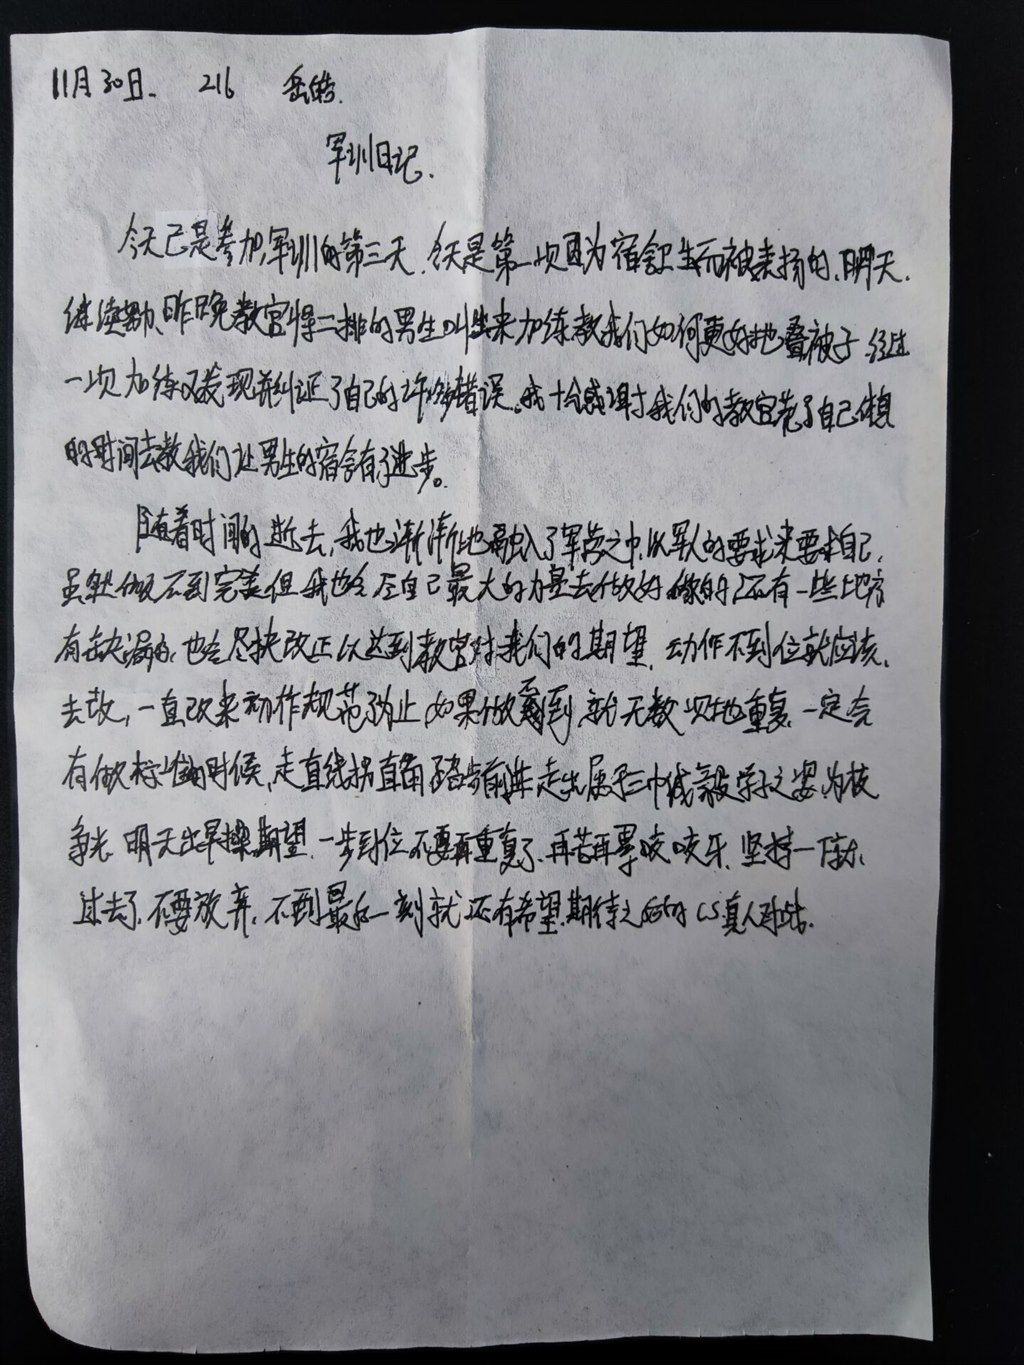 11月30日. 216 岳皓.
军训日记.
今天已是参加军训的第三天.今天是第一次因为宿舍卫生而被表扬的.明天.
继续努力.昨晚教官将二排的男生叫出来加练教我们如何更好地叠被子.经过
一次加练又发现并纠正了自己的许多错误。我十分感谢我们的教官花了自己休息
的时间去教我们让男生的宿舍有了进步。
随着时间的逝去,我也渐渐地融入了军营之中.以军人的要求来要求自己.
虽然做不到完美但我也会尽自己最大的力量去做好.做的还有一些地方
有缺漏的、也会尽快改正以达到教官对我们的期望.动作不到位就应该.
去改,一直改来动作规范了为止如果做到就无数次地重复.一定会
有做标准的时候,走直线拐直角踏步前进走出属于三中成毅学子之姿.为校
争光.明天出早操期望.一步到位不要再重复了.再苦再累咬咬牙.坚持一下就.
过去了.不要放弃.不到最后一刻就还有希望.期待之后的CS真人对战.